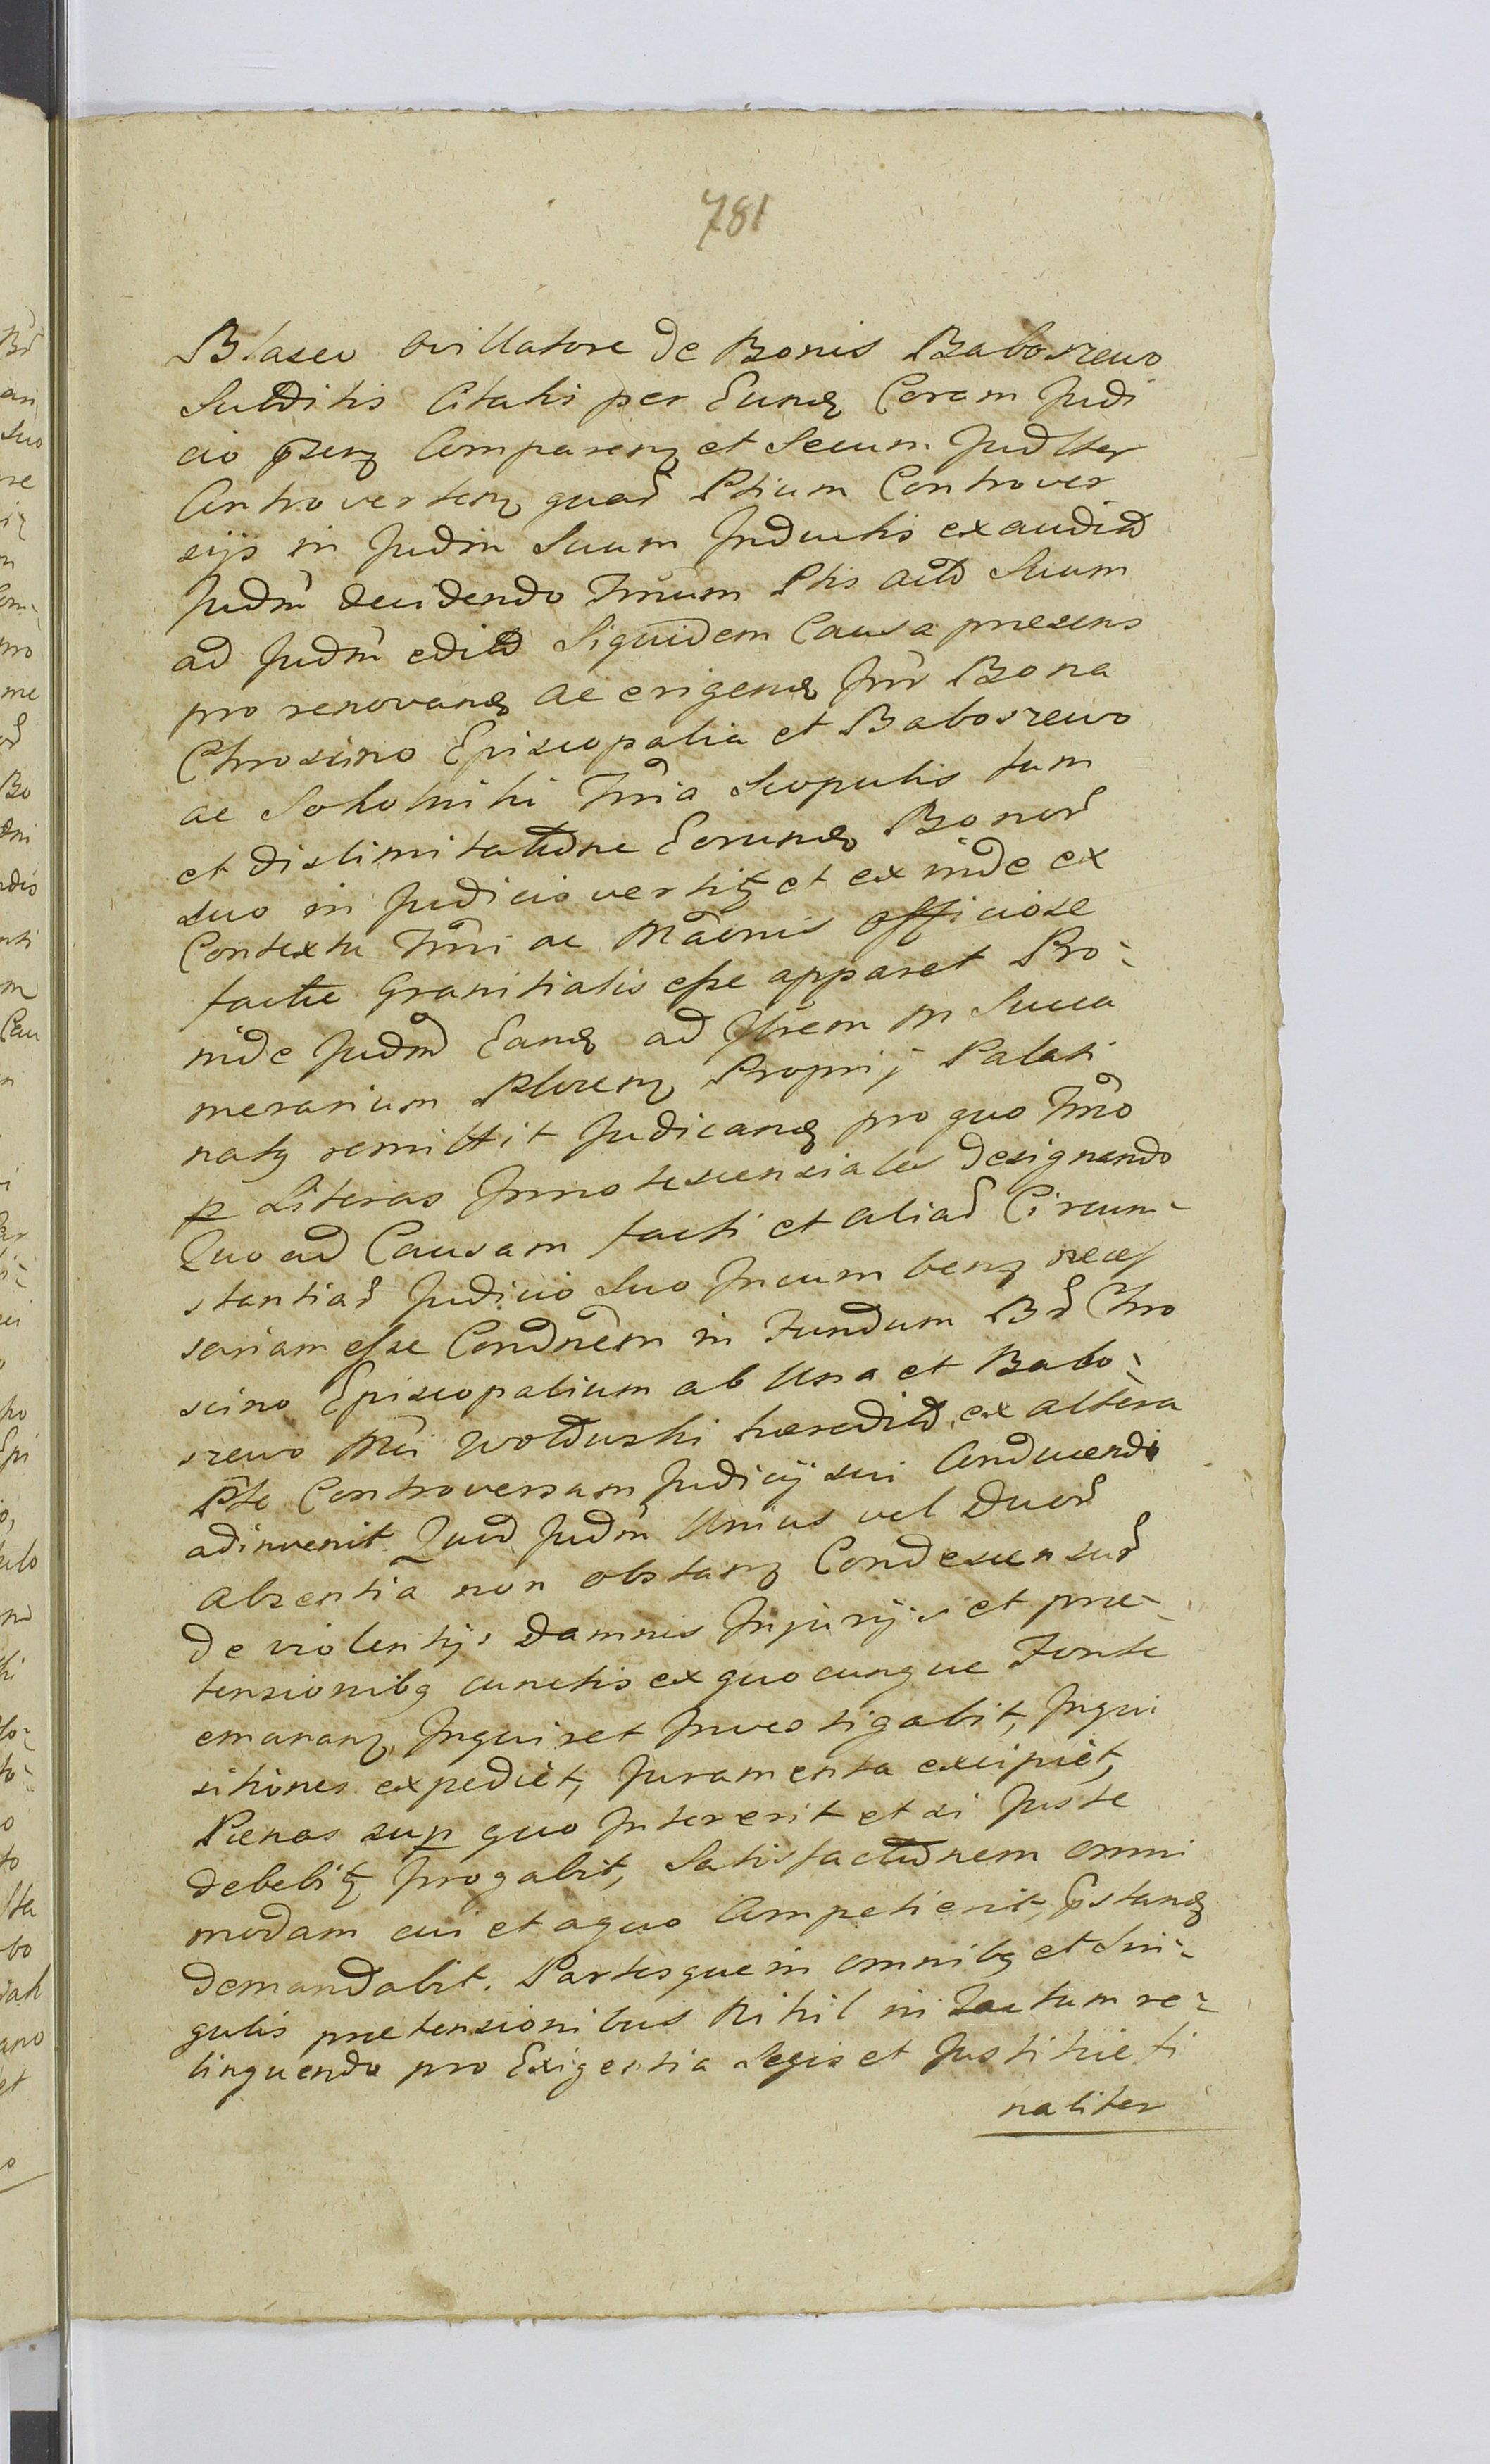 781
Blaseo Ovillatore de Bonis Baboszewo
Subditis Citatis per Eundꝫ Coram Judi
cio pꝛsenꝫ Comparenꝫ et Secum Judlter
Controvertenꝫ quar̃ Ptium Controver
sijs in Judm̃ Suum Inductis exaudit̃
Judm̃ decidendo Tm̃um Ptis Act̃ Suum
ad Judm̃ edit̃ Siquidem Causa præsens
pro renovandꝫ ac erigendꝫ Inr̃ Bona
Chroscino Episcopalia et Baboszewo
ac Sokolniki Tm̃ia Scopulis tum
et dislimitat̃ne Eorundꝫ Bonor̃
suo in Judicio vertitꝫ et ex inde ex
Contextu Tm̃i ac M̃aenis officiose
factæ Granitialis esse apparet Pro-
inde Judm̃ Eandꝫ ad Jtrem in Succa
merarium Plocenꝫ Proprij Palati
natꝫ remittit Judicandꝫ pro quo Tm̃o
p Literas Innotescentiales designando
Quo ad Causam facti et aliar̃ Circum-
stantiar̃ Judicio Suo Incumbenꝫ neces
sariam esse Condnẽm in Fundum Br̃ Chro
scino Episcopalium ab Una et Babo-
szewo Mci Wolduski hæredit̃ ex altera
Pte Controversam Judicij sui Conducendi
adinvenit. Quod Judm̃ Unius vel Duor̃
absentia non obstanꝫ Condescensur̃
de violentijs Damnis Injurijs et præ-
tensionibꝫ cunctis ex quocunque Fonte
emananꝫ, Inquiret Investigabit, Inqui
sitiones expediet, Juramenta excipiet,
Pænas sup quo Intererit et si Juste
debebitꝫ Irrogabit, Satisfact̃nem omni
modam cui et a quo Competierit, pꝛstandꝫ
demandabit. Partesque in omnibꝫ et Sin-
gulis prætensionibus Nihil in tactum re-
linquendo pro Exigentia Legis et Justitiæ fi
naliter